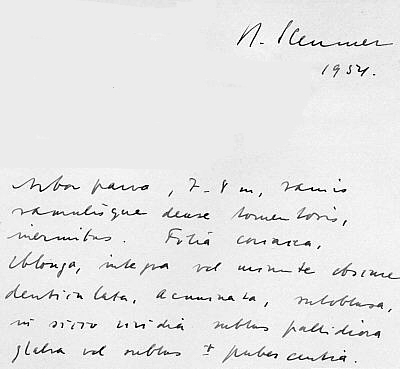 N. Kenner
1954.
Arbor parva, 7-8 m, ramis
ramulisque dense tomentosis,
inermibus. Folia coriacea,
oblonga, integra vel minute obscure
denticulata, acuminata, subobtusa,
in sicco viridia subtus pallidiora
glabra vel subtus ± pubescentia.